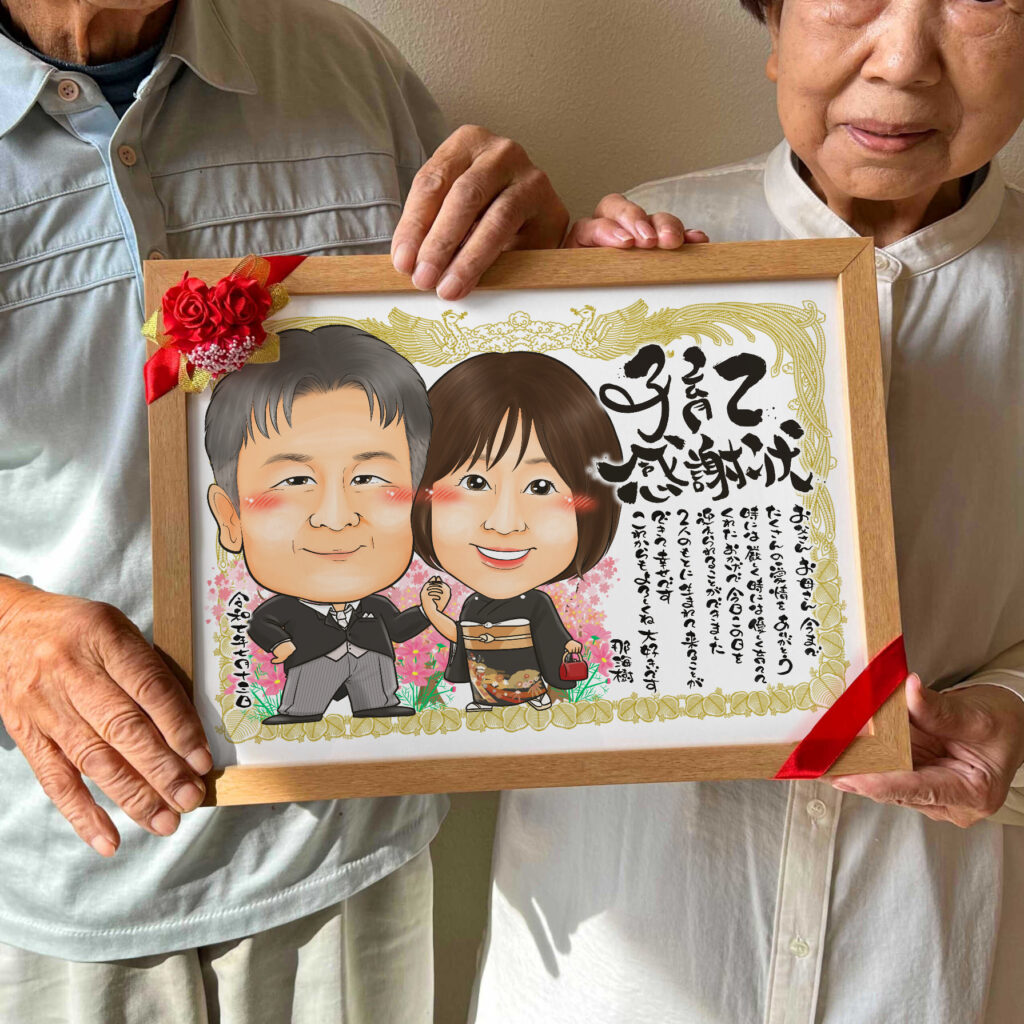 子育て
感謝状
お父さん お母さん 今まで
たくさんの愛情を ありがとう
時には厳しく 時には優しく育ててく
くれた おかげで 今日この日を
迎えられることができました
2人のもとに 生まれて来ることが
できて 幸せです
これからもよろしくね 大好きです
那海樹
令和七年七月十二日